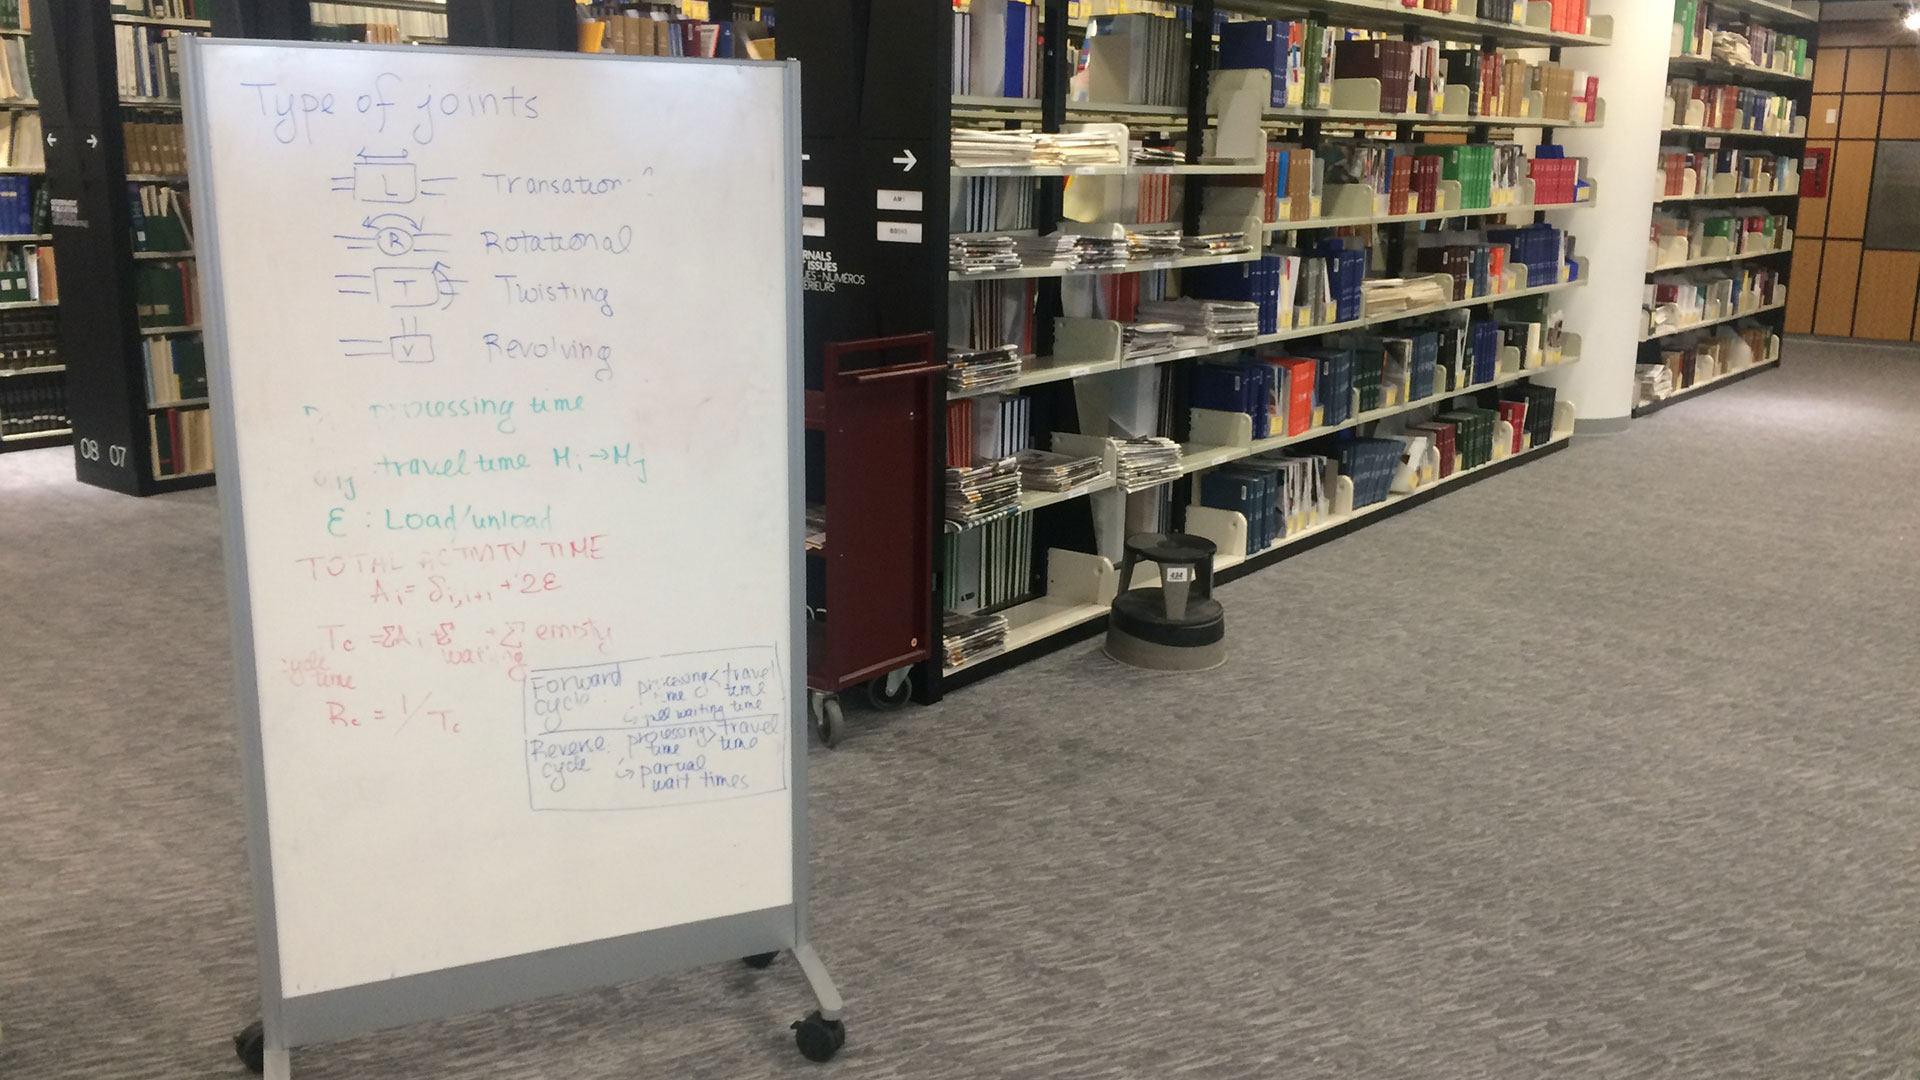 Type of joints
L Transation ?
R Rotational
T Twisting
V Revolving
processing time
ij : travel time Mi → Mj
ε : Load/unload
TOTAL ACTIVITY TIME
Ai = δi,i+1 + 2ε
Tc = ΣAi + Σ waiting + Σ empty
cycle time
Rc = 1/Tc
Forward cycle: processing time < travel time
↳ waiting time
Reverse cycle: processing time > travel time
↳ partial wait times
08 07
← →
→
RNALS
T ISSUES
ES - NUMÉROS
ÉRIEURS
434